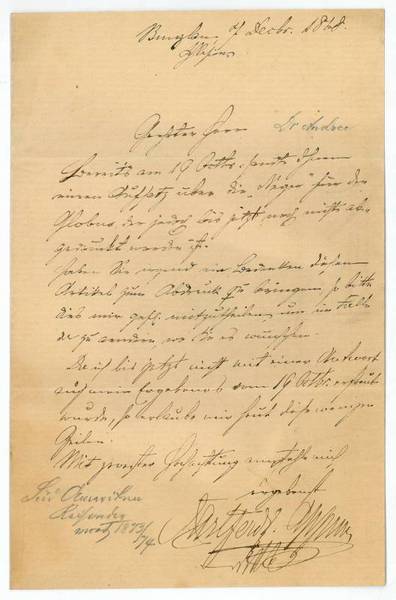 7 Decbr. 1868.
Geehrter Herr Dr Andree
Bereits am 19 Octbr. sandte Ihnen
einen Aufsatz über die „Neger“ für den
Globus, der jedoch bis jetzt noch nicht ab-
gedruckt worden ist.
Haben Sie irgend ein Bedenken diesen
Artikel zum Abdruck zu bringen, so bitte
dies mir gefl. mitzutheilen, um im Falle
zu ändern, wo Sie es wünschen.
Da ich bis jetzt nicht mit einer Antwort
auf mein Ergebenes vom 19 Octbr. erfreut
wurde, so erlaube mir heut diese wenigen
Zeilen.
Mit Hochachtung empfehle mich
ergebenst
1873/74.